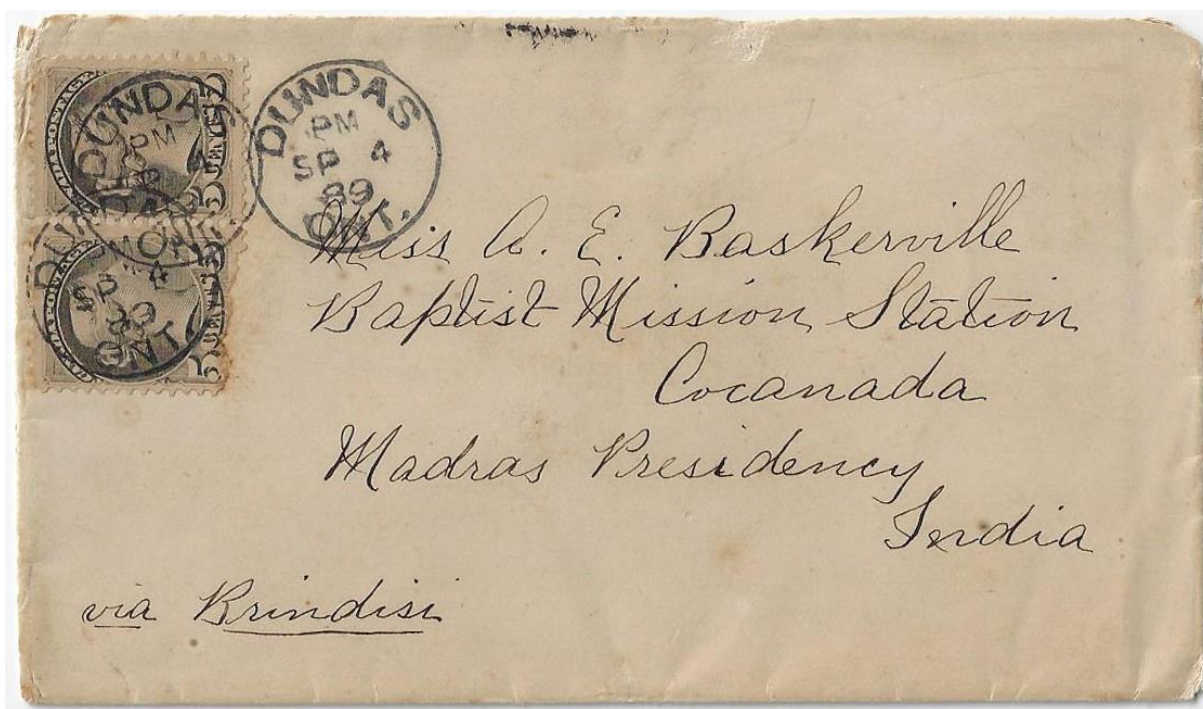 DUNDAS
PM
SP 4
89
ONT.
DUNDAS
PM
ONT.
SP 4
89
ONT
Miss A. E. Baskerville
Baptist Mission Station
Cocanada
Madras Presidency
India
via Brindisi